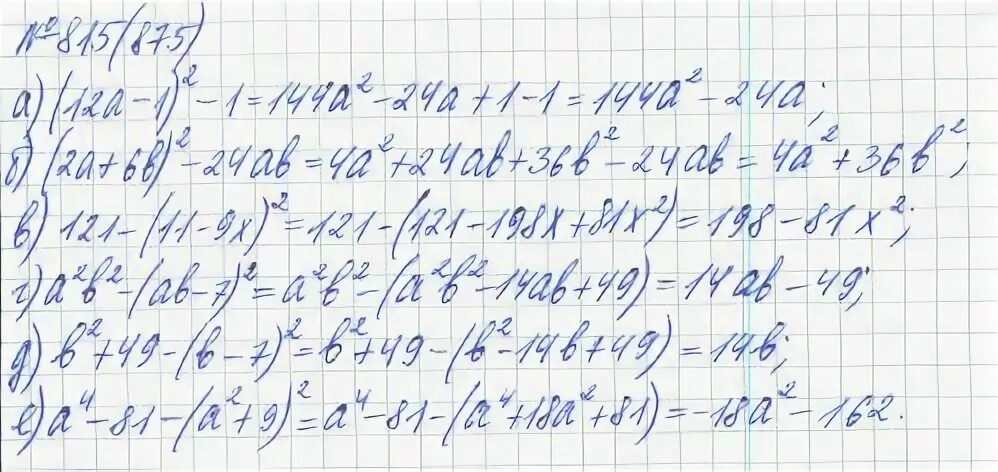 №815(875)
а) (12a-1)²-1=144a²-24a+1-1=144a²-24a;
б) (2a+6b)²-24ab=4a²+24ab+36b²-24ab=4a²+36b²;
в) 121-(11-9x)²=121-(121-198x+81x²)=198-81x²;
г) a²b²-(ab-7)²=a²b²-(a²b²-14ab+49)=14ab-49;
д) b²+49-(b-7)²=b²+49-(b²-14b+49)=14b;
е) a⁴-81-(a²+9)²=a⁴-81-(a⁴+18a²+81)=-18a²-162.